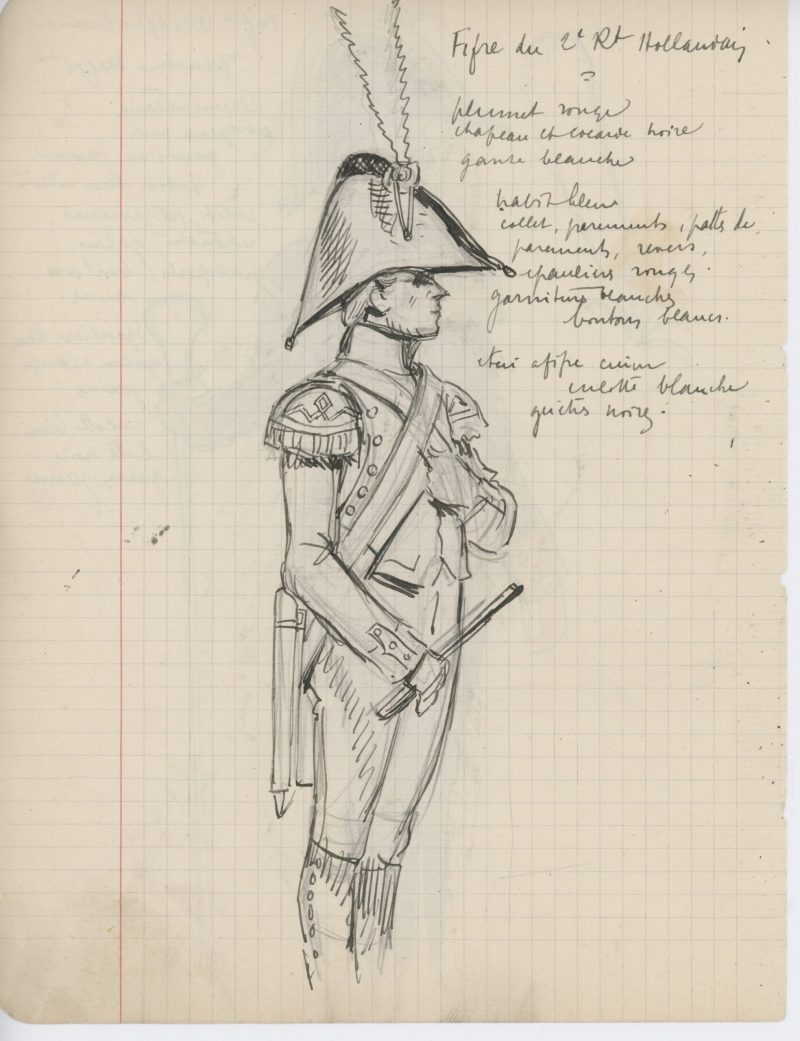 Fifre du 2e Rt Hollandais.
plumet rouge
chapeau et cocarde noire
ganse blanche
habit bleu
collet, parements, pattes de
parements, revers,
épauliers rouges.
garniture blanches
boutons blancs.
étui a fifre cuivre
culotte blanche
guêtres noires.